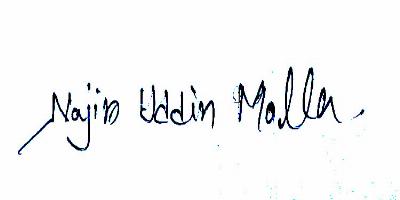 Najib Uddin Molla.